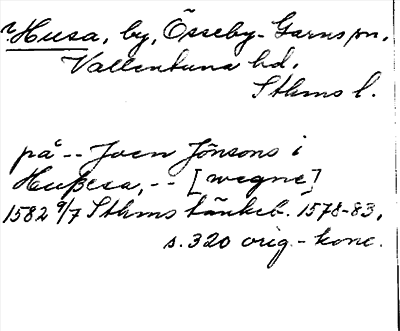 ? Husa, by, Össeby-Garns sn,
Vallentuna hd,
Sthms l.
på -- Joen Jönsons i
Hußesa, -- [wegne]
1582 9/7 Sthms tänkeb. 1578-83,
s. 320 orig.-konc.